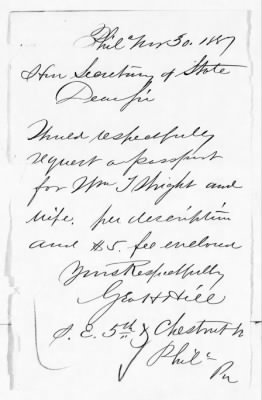 Phila Nov 30. 1887
Hon Secretary of State
Dear Sir
Would respectfully
request a passport
for Wm T Wright and
wife. per description
and $5. fee enclosed
Yours Respectfully
Geo H Hill
S. E. 5th & Chestnut St
Phila
Pa